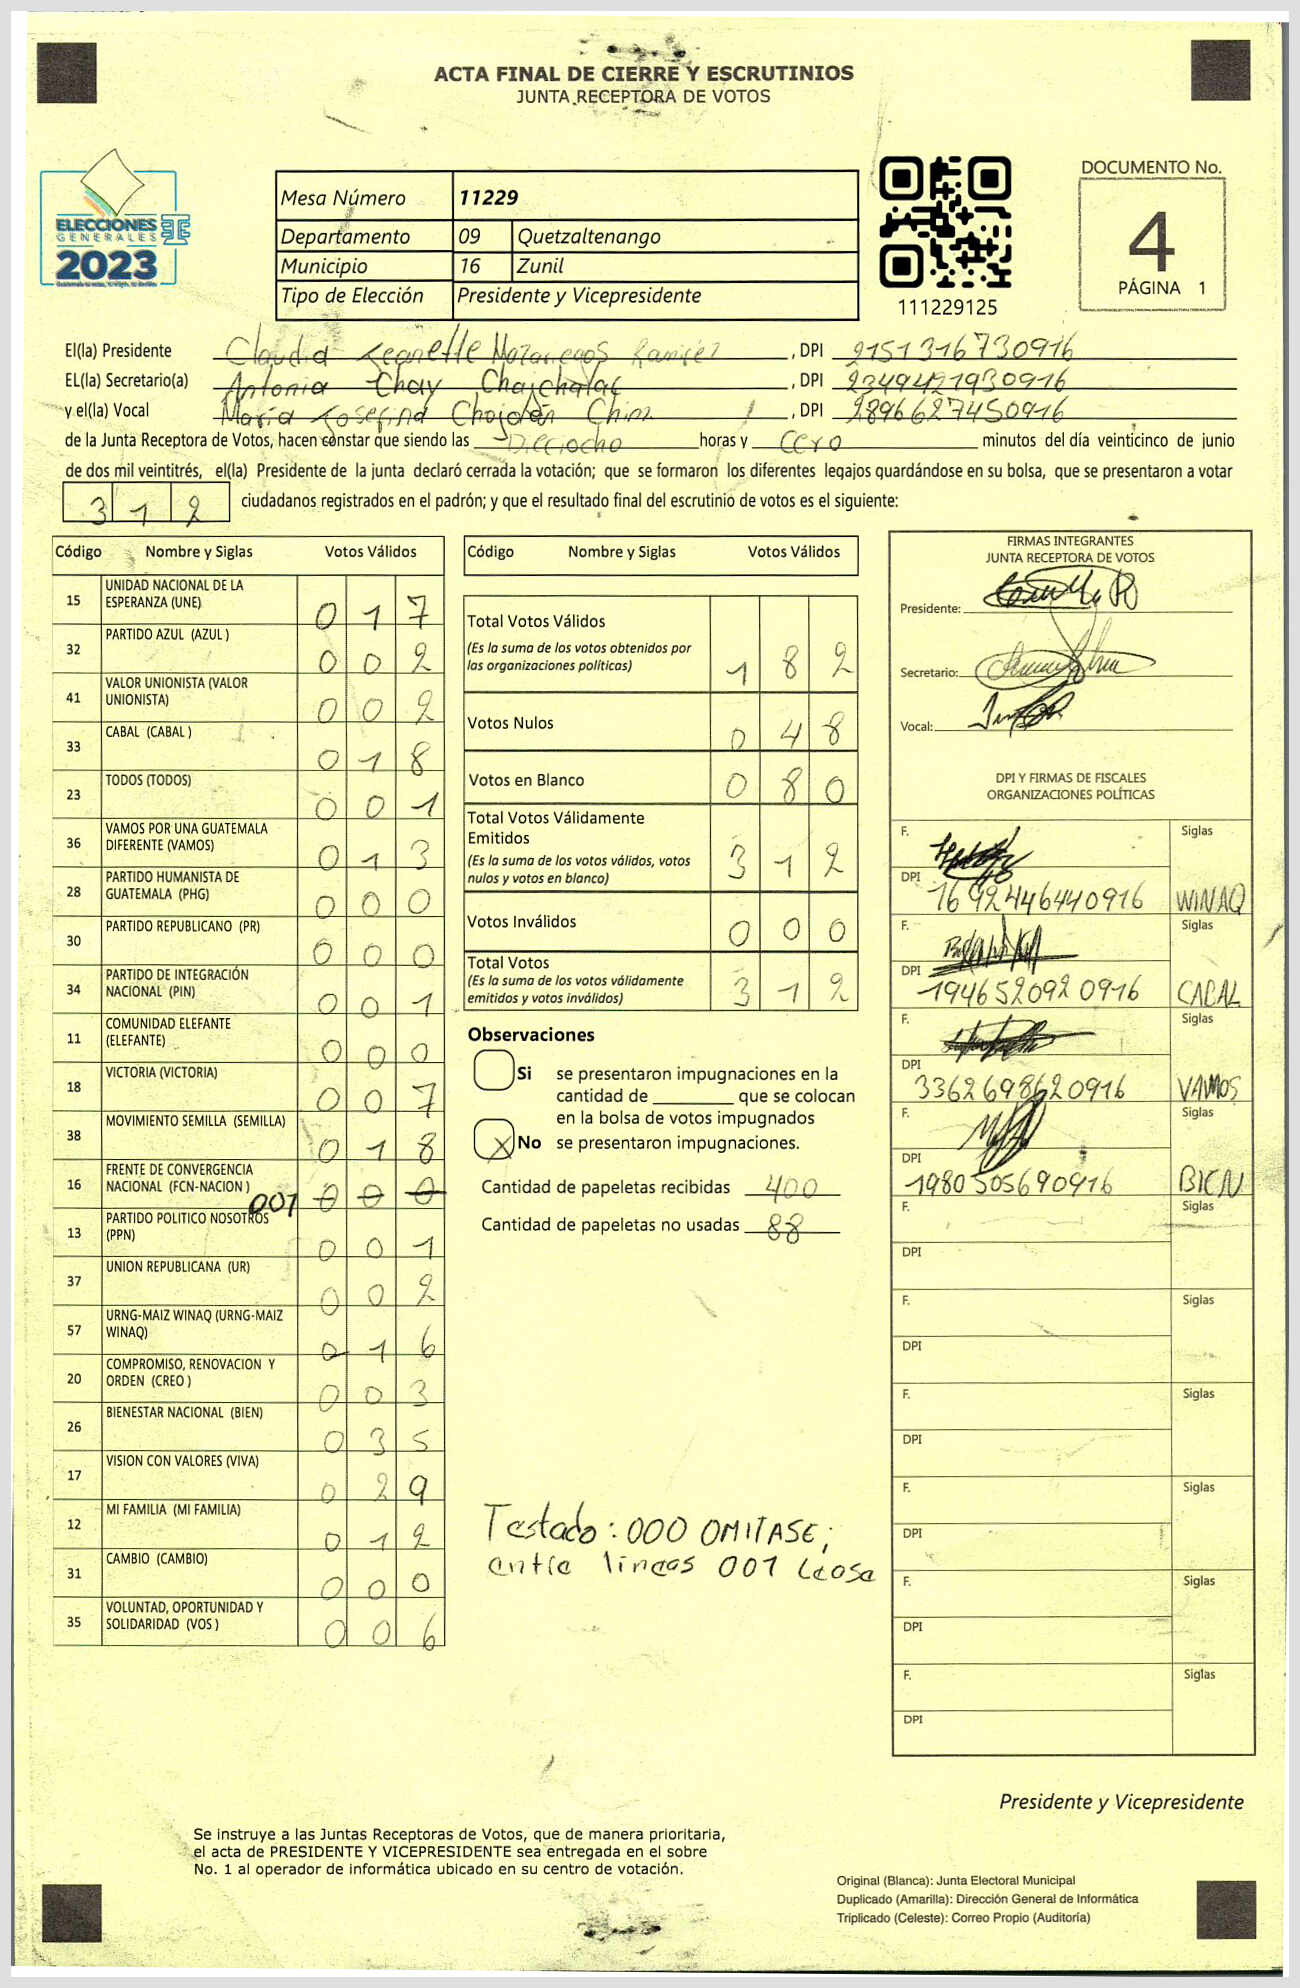 ACTA FINAL DE CIERRE Y ESCRUTINIOS
JUNTA RECEPTORA DE VOTOS
ELECCIONES
GENERALES
2023
Mesa Número 11229
Departamento 09 Quetzaltenango
Municipio 16 Zunil
Tipo de Elección Presidente y Vicepresidente
111229125
DOCUMENTO No.
4
PÁGINA 1
El(la) Presidente Claudia Jeanette Mazariegos Ramirez, DPI 2151316730916
EL(la) Secretario(a) Antonia Chay Chajchalac, DPI 2349421930916
y el(la) Vocal María Josefina Chojolán Chim, DPI 2896627450916
de la Junta Receptora de Votos, hacen constar que siendo las Dieciocho horas y Cero minutos del día veinticinco de junio
de dos mil veintitrés, el(la) Presidente de la junta declaró cerrada la votación; que se formaron los diferentes legajos quardándose en su bolsa, que se presentaron a votar
312 ciudadanos registrados en el padrón; y que el resultado final del escrutinio de votos es el siguiente:
Código Nombre y Siglas Votos Válidos
15 UNIDAD NACIONAL DE LA ESPERANZA (UNE) 017
32 PARTIDO AZUL (AZUL ) 002
41 VALOR UNIONISTA (VALOR UNIONISTA) 002
33 CABAL (CABAL ) 018
23 TODOS (TODOS) 001
36 VAMOS POR UNA GUATEMALA DIFERENTE (VAMOS) 013
28 PARTIDO HUMANISTA DE GUATEMALA (PHG) 000
30 PARTIDO REPUBLICANO (PR) 000
34 PARTIDO DE INTEGRACIÓN NACIONAL (PIN) 001
11 COMUNIDAD ELEFANTE (ELEFANTE) 000
18 VICTORIA (VICTORIA) 007
38 MOVIMIENTO SEMILLA (SEMILLA) 018
16 FRENTE DE CONVERGENCIA NACIONAL (FCN-NACION ) 001 000
13 PARTIDO POLITICO NOSOTROS (PPN) 001
37 UNION REPUBLICANA (UR) 002
57 URNG-MAIZ WINAQ (URNG-MAIZ WINAQ) 016
20 COMPROMISO, RENOVACION Y ORDEN (CREO ) 003
26 BIENESTAR NACIONAL (BIEN) 035
17 VISION CON VALORES (VIVA) 029
12 MI FAMILIA (MI FAMILIA) 012
31 CAMBIO (CAMBIO) 000
35 VOLUNTAD, OPORTUNIDAD Y SOLIDARIDAD (VOS ) 006
Código Nombre y Siglas Votos Válidos
Total Votos Válidos 182
(Es la suma de los votos obtenidos por
las organizaciones políticas)
Votos Nulos 048
Votos en Blanco 080
Total Votos Válidamente
Emitidos 312
(Es la suma de los votos válidos, votos
nulos y votos en blanco)
Votos Inválidos 000
Total Votos 312
(Es la suma de los votos válidamente
emitidos y votos inválidos)
Observaciones
Si se presentaron impugnaciones en la
cantidad de ________ que se colocan
en la bolsa de votos impugnados
X No se presentaron impugnaciones.
Cantidad de papeletas recibidas 400
Cantidad de papeletas no usadas 88
Testado: 000 OMITASE;
entre lineas 001 Lease
FIRMAS INTEGRANTES
JUNTA RECEPTORA DE VOTOS
Presidente:
Secretario:
Vocal:
DPI Y FIRMAS DE FISCALES
ORGANIZACIONES POLÍTICAS
F. Siglas
DPI 1692446440916 WINAQ
F. Siglas
DPI 1946520920916 CABAL
F. Siglas
DPI 3362698620916 VAMOS
F. Siglas
DPI 1980505690916 BIEN
F. Siglas
DPI
F. Siglas
DPI
F. Siglas
DPI
F. Siglas
DPI
F. Siglas
DPI
F. Siglas
DPI
Presidente y Vicepresidente
Se instruye a las Juntas Receptoras de Votos, que de manera prioritaria,
el acta de PRESIDENTE Y VICEPRESIDENTE sea entregada en el sobre
No. 1 al operador de informática ubicado en su centro de votación.
Original (Blanca): Junta Electoral Municipal
Duplicado (Amarilla): Dirección General de Informática
Triplicado (Celeste): Correo Propio (Auditoría)